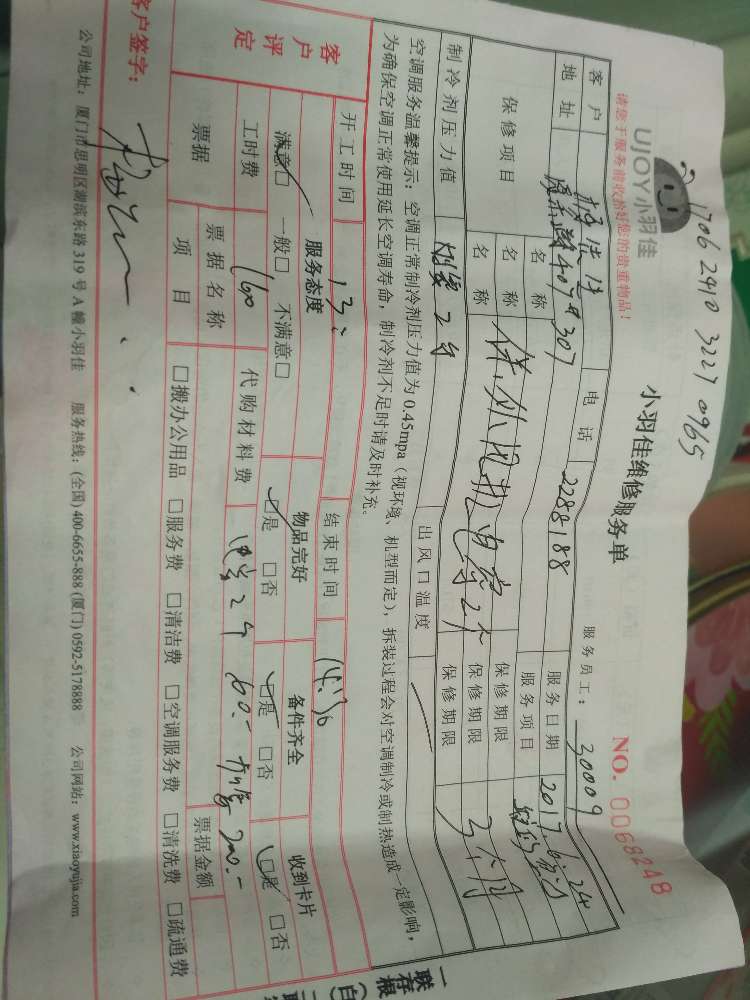 1706 2910 3227 0965
UJOY小羽佳
小羽佳维修服务单
NO. 0068248
请您于服务前收拾好您的贵重物品!
服务员工: 30009
客户 电话 2288188 服务日期 2017.6.24
地址 407#307 服务项目
保修项目 名称 保修期限
名称 外风机电容2个 保修期限 3个月
名称 保修期限
制冷剂压力值 出风口温度
空调服务温馨提示: 空调正常制冷剂压力值为 0.45mpa (视环境、机型而定), 拆装过程会对空调制冷或制热造成一定影响,
为确保空调正常使用延长空调寿命, 制冷剂不足时请及时补充.
开工时间 13: 结束时间 14:30
客户评定 服务态度 物品完好 备件齐全 收到卡片
满意□ 一般□ 不满意□ □是 □否 □是 □否 □是 □否
工时费 160 代购材料费 电容2个 60.-
票据 票据名称 票据金额
项目 □搬办公用品 □服务费 □清洁费 □空调服务费 □清洗费 □疏通费
客户签字:
公司地址: 厦门市思明区湖滨东路 319 号 A 幢小羽佳 服务热线: (全国) 400-6655-888 (厦门) 0592-5178888 公司网站: www.xiaoyujia.com
一联存根(白)